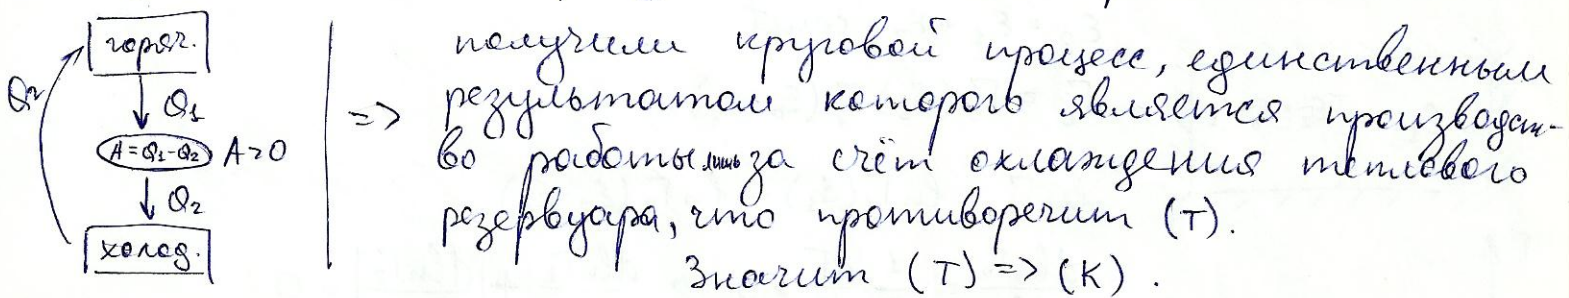 горяч.
Q2
Q1
A=Q1-Q2 A>0
Q2
холод.
=> получили круговой процесс, единственным
результатом которого является производст-
во работы лишь за счёт охлаждения теплового
резервуара, что противоречит (T).
Значит (T) => (K).